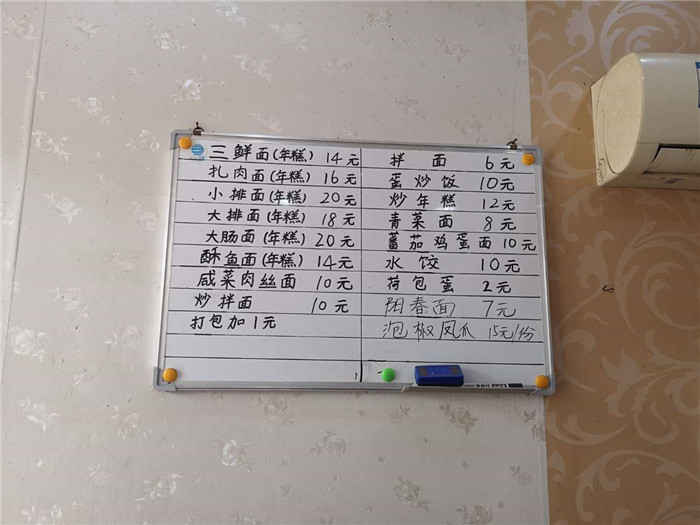 三鲜面(年糕) 14元
扎肉面(年糕) 16元
小排面(年糕) 20元
大排面(年糕) 18元
大肠面(年糕) 20元
酥鱼面(年糕) 14元
咸菜肉丝面 10元
炒拌面 10元
打包加1元
拌面 6元
蛋炒饭 10元
炒年糕 12元
青菜面 8元
蕃茄鸡蛋面 10元
水饺 10元
荷包蛋 2元
阳春面 7元
泡椒凤爪 15元/份